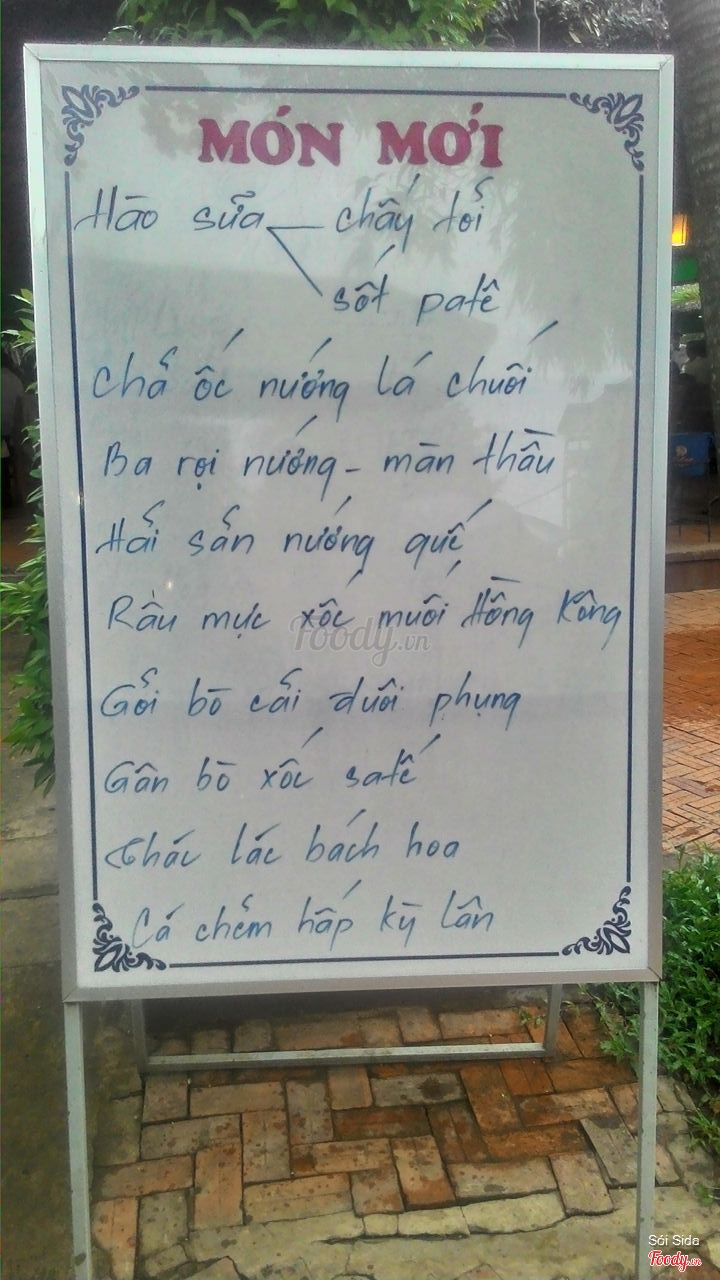 MÓN MỚI
Hào sữa — cháy tỏi
sốt patê
Chả ốc nướng lá chuối
Ba rọi nướng - màn thầu
Hải sản nướng quế
Râu mực xốc muối Hồng Kông
Gỏi bò cải đuôi phụng
Gân bò xốc satế
Thác lác bách hoa
Cá chẽm hấp kỳ lân
Foody.vn
Sói Sida
Foody.vn